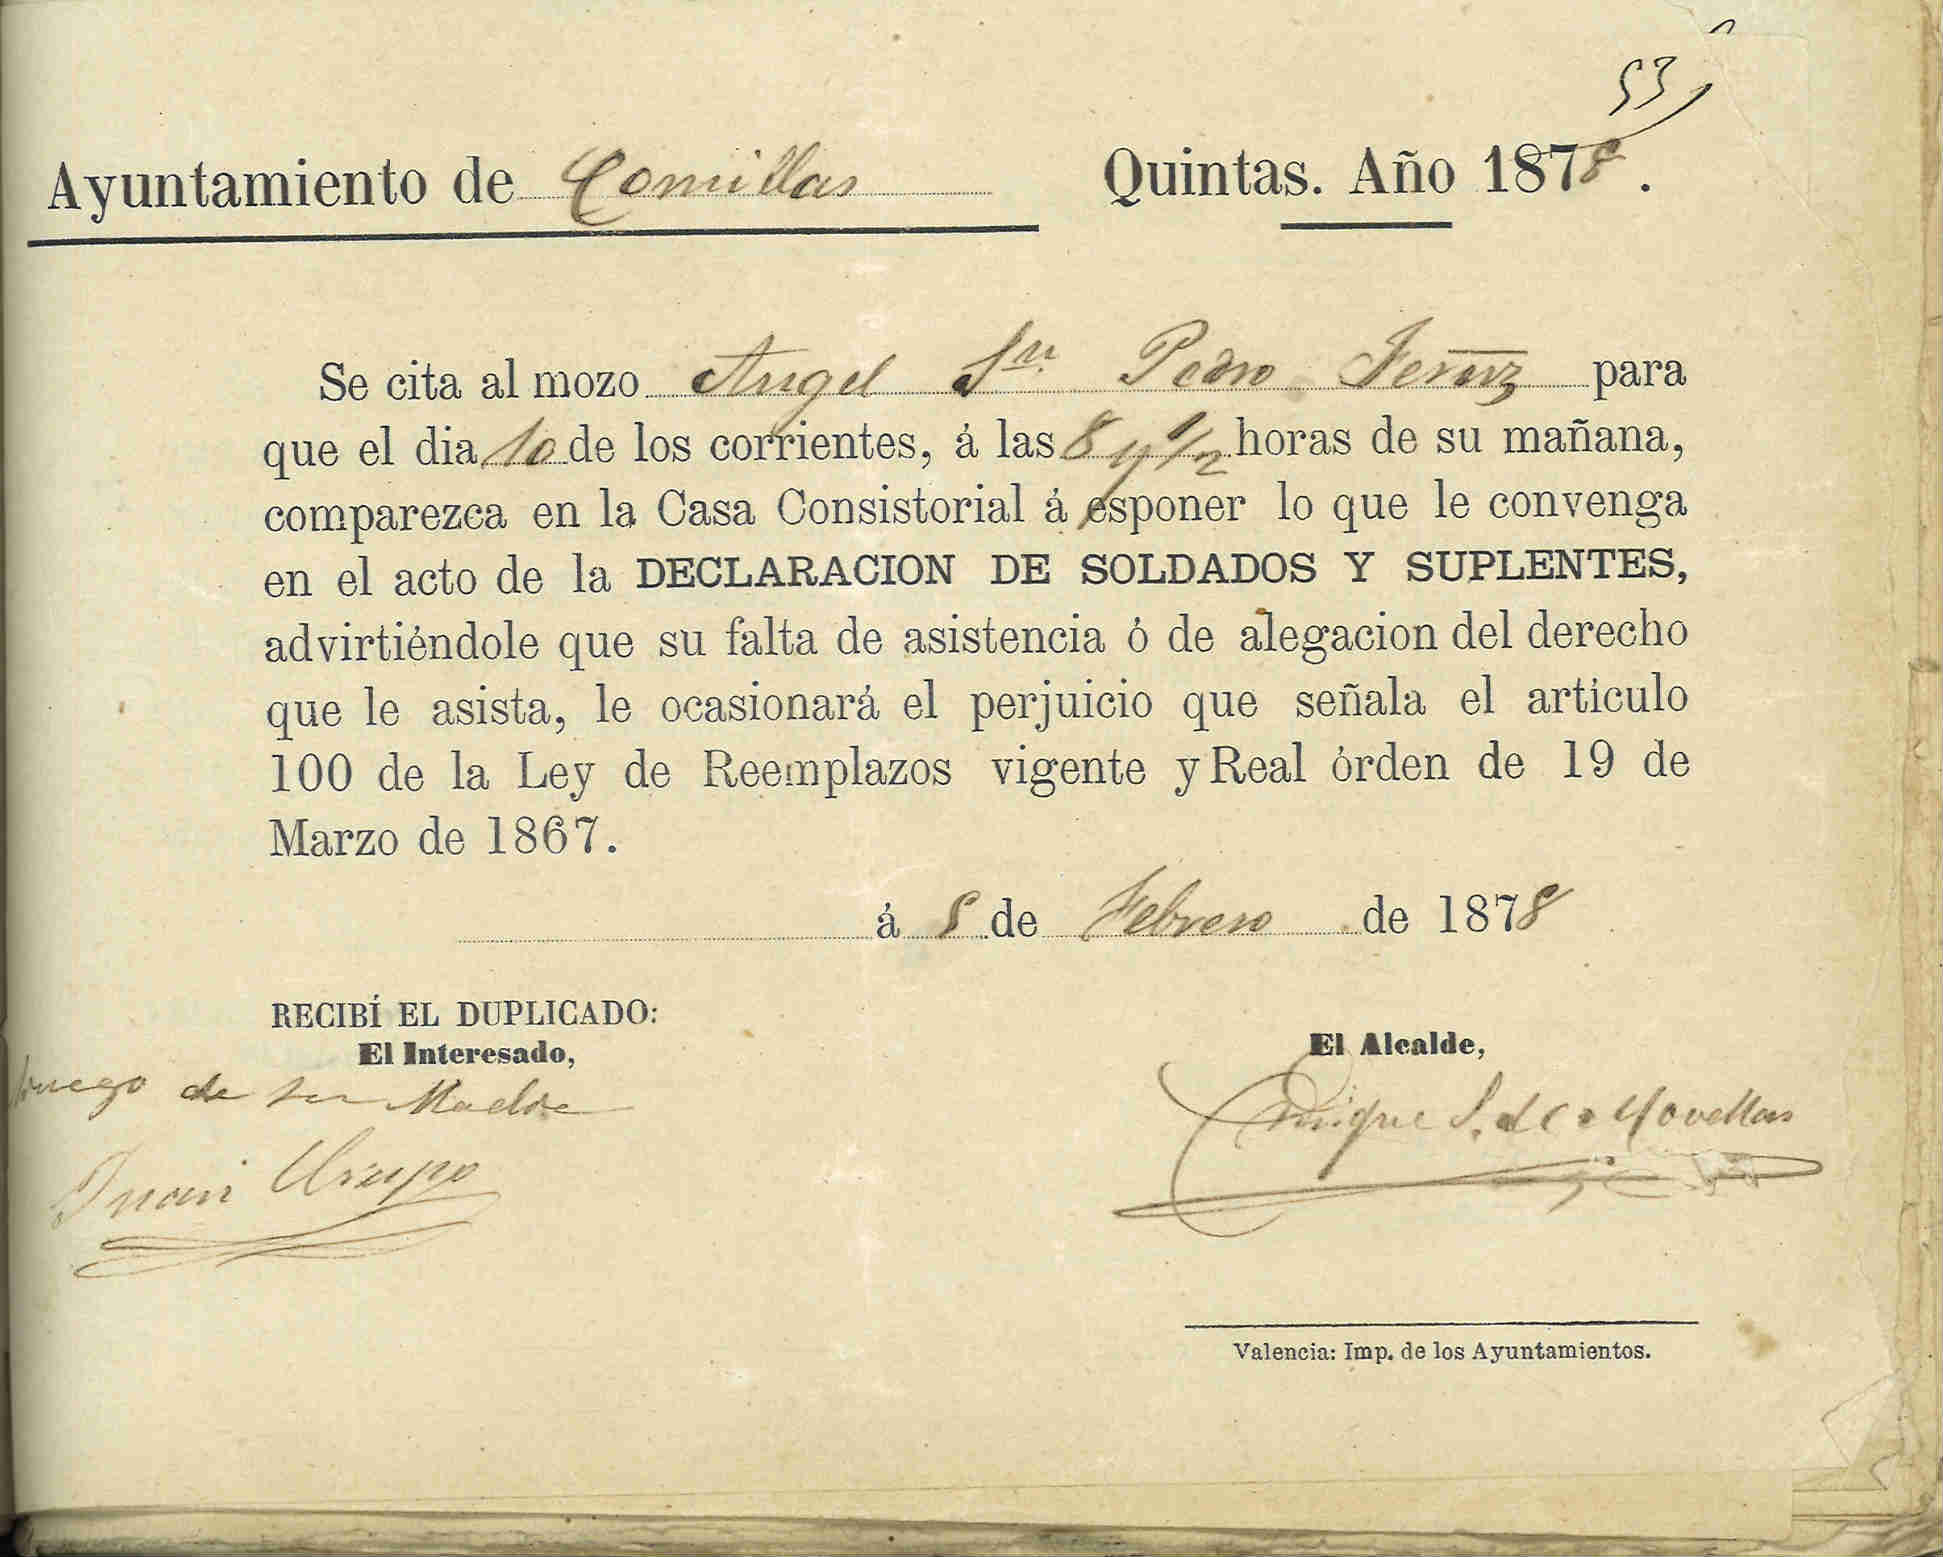 53
Ayuntamiento de Comillas Quintas. Año 1878.
Se cita al mozo Angel Sn. Pedro para
que el dia 10 de los corrientes, á las 8 y 1/2 horas de su mañana,
comparezca en la Casa Consistorial á esponer lo que le convenga
en el acto de la DECLARACION DE SOLDADOS Y SUPLENTES,
advirtiéndole que su falta de asistencia ó de alegacion del derecho
que le asista, le ocasionará el perjuicio que señala el artículo
100 de la Ley de Reemplazos vigente y Real órden de 19 de
Marzo de 1867.
á 8 de Febrero de 1878
RECIBÍ EL DUPLICADO:
El Interesado,
El Alcalde,
ruego de su Madre
Enrique S. de Movellan
Juan Crespo
Valencia: Imp. de los Ayuntamientos.